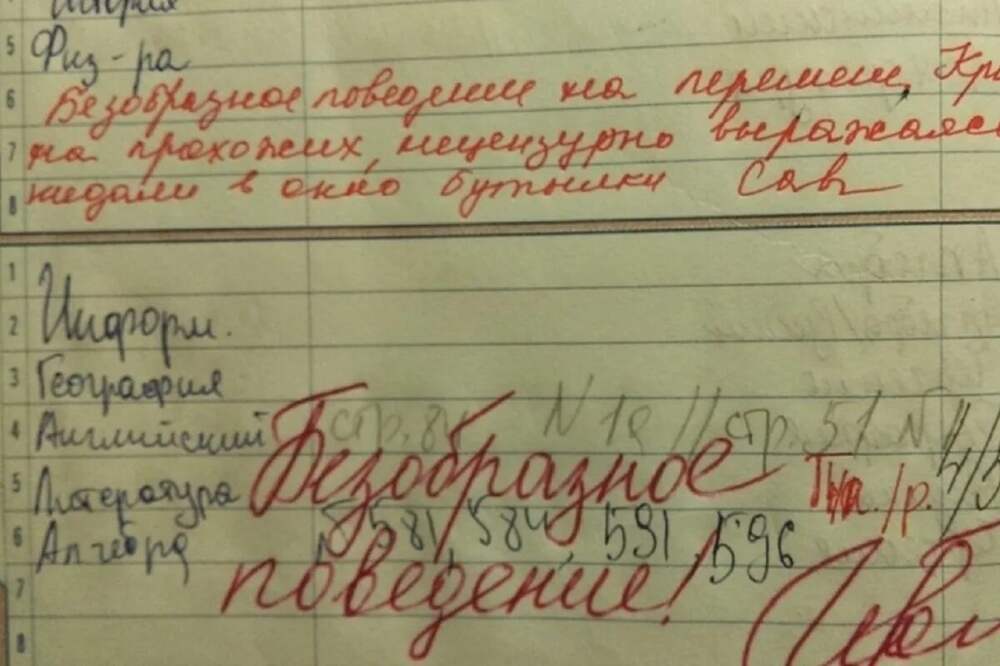 История
5 Физ-ра
6 Безобразное поведение на перемен,
7 на прохожих, нецензурно выражаясь
8 кидали в окно бутылки Сав
1
2 Информ.
3 География
4 Английский стр. 8 N 18 // стр. 51 N
5 Литература Безобразное /р. 4/5
6 Алгебра № 581, 584, 591, 596
7 поведение!
8